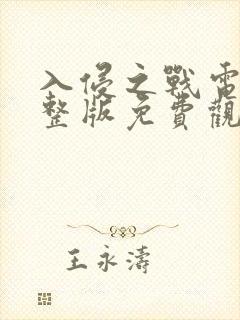 入侵之戰電
整版免費觀
王永濤